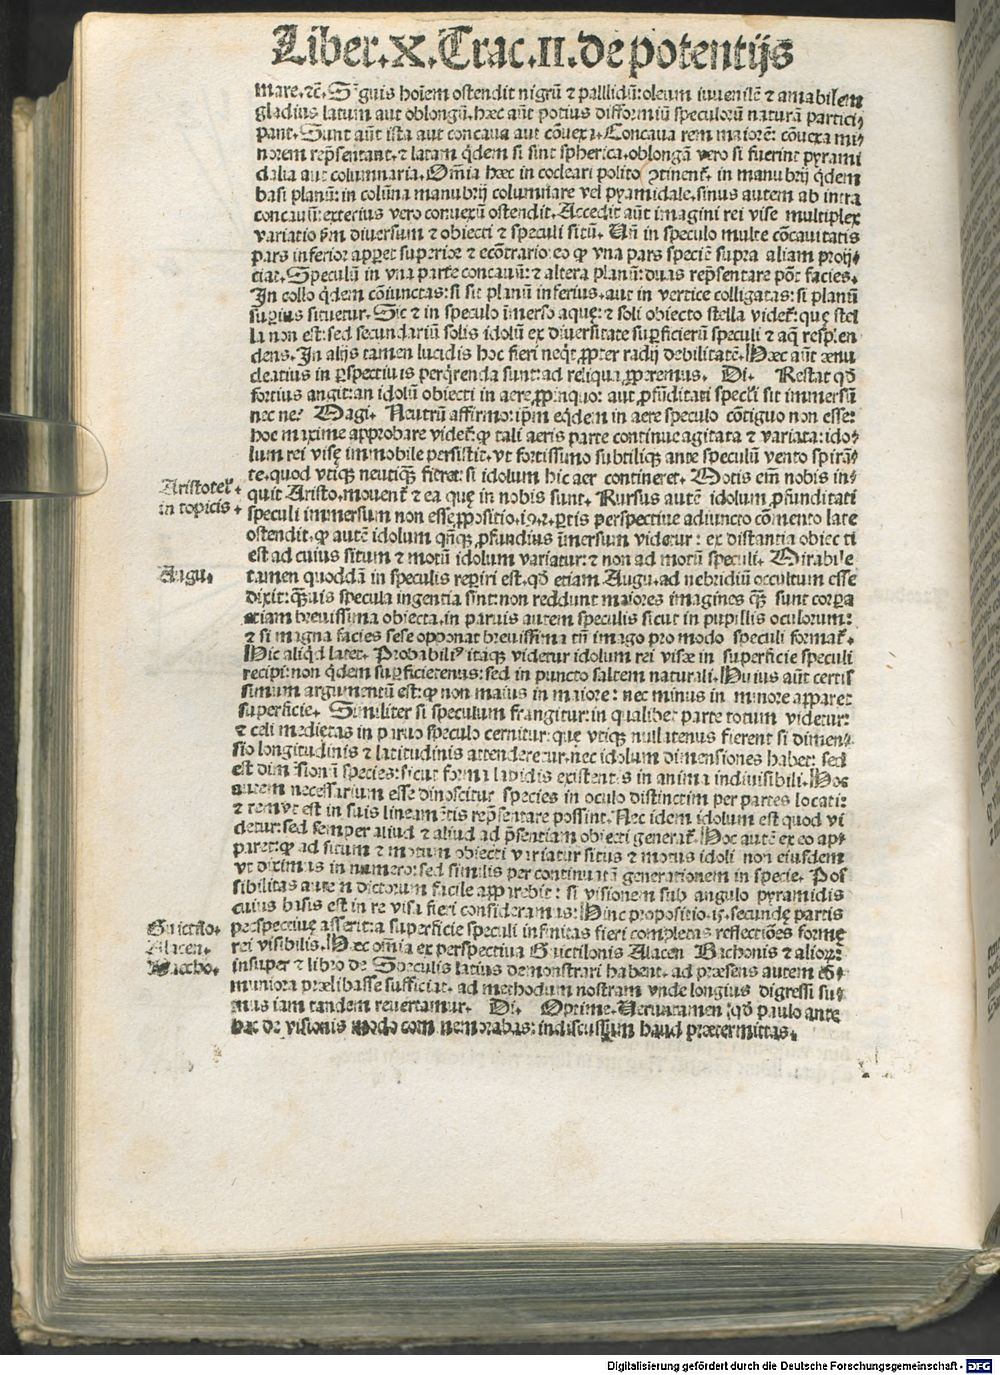 Liber.X.Trac.II.de potentijs
mare.⁊c̃. Sãguis hoĩem ostendit nigrũ ⁊ palllidũ: oleum iuvenilẽ ⁊ amabilem
gladius latum aut oblongũ. hæc aũt potius difformiũ speculorũ naturã partici/
pant. Sunt aũt ista aut concaua aut cõuexa. Concaua rem maiorẽ: cõuexa mi/
norem rep̃sentant. ⁊ latam q̃dem si sint spherica. oblongã vero si fuerint pyrami
dalia aut columnaria. Om̃ia hæc in cocleari polito ꝯtinent᷑. in manubrij q̃dem
basi planũ: in colũna manubrij columnare vel pyramidale. sinus autem ab intra
concauũ: exterius vero conuexũ ostendit. Accedit aũt imagini rei vise multiplex
variatio ẜm diversum ⁊ obiecti ⁊ speculi sitũ. Uñ in speculo multe cõcauitatis
pars inferior apparet superior ⁊ ecõtrario: eo ꝙ vna pars speciẽ supra aliam proij/
ciat. Speculũ in vna parte concauũ: ⁊ altera planũ: duas rep̃sentare põt facies.
In collo q̃dem cõiunctas: si sit planũ inferius. aut in vertice colligatas: si planũ
suꝑius situetur. Sic ⁊ in speculo ĩmerso aquę: ⁊ soli obiecto stella videt᷑: quę stel
la non est: sed secundariũ solis idolũ ex diversitate suꝑficierũ speculi ⁊ aq̃ resplen
dens. In alijs tamen lucidis hoc fieri neq̃t ꝓpter radij debilitatẽ. Hæc aũt ænu
cleatius in ꝑspectiuis perq̃renda sunt: ad reliqua ꝓperemus. Di. Restat qđ
fortius angit: an idolũ obiecti in aere ꝓpinquo: aut ꝓfũditati speculi sit immersũ
nec ne? Magi. Neutrũ affirmo: ip̃m eq̃dem in aere speculo cõtiguo non esse:
hoc maxime approbare videt᷑: ꝙ tali aeris parte continue agitata ⁊ variata: ido/
lum rei visę immobile persistit. vt fortissimo subtiliqꝫ ante speculũ vento spirãn
te. quod vtiqꝫ neutiqꝫ fieret: si idolum hic aer contineret. Motis eĩm nobis in/
quit Aristo. mouent᷑ ⁊ ea quę in nobis sunt. Rursus autẽ idolum ꝓfunditati
speculi immersum non esse ꝓpositio.19.2.ꝑtis perspectiue adiuncto cõmento late
ostendit. ꝙ autẽ idolum qñqꝫ ꝓfundius ĩmersum videtur: ex distantia obiecti
est ad cuius situm ⁊ motũ idolum variatur: ⁊ non ad motũ speculi. Mirabile
tamen quoddã in speculis reꝑiri est. qđ etiam Augu. ad nebridiũ occultum esse
dixit: qꝫuis specula ingentia sint: non reddunt maiores imagines qꝫ sunt corꝑa
etiam breuissima obiecta. in paruis autem speculis sicut in pupillis oculorum:
⁊ si magna facies sese opponat breuissima tñ imago pro modo speculi format᷑.
Hic aliq̃d latet. Probabiliꝰ itaqꝫ videtur idolum rei visæ in superficie speculi
recipi: non q̃dem suꝑficietenus: sed in puncto saltem naturali. Huius aũt certis
simum argumentũ est: ꝙ non maius in maiore: nec minus in minore apparet
superficie. Similiter si speculum frangitur: in qualibet parte totum videtur:
⁊ celi medietas in paruo speculo cernitur: que vtiqꝫ nullatenus fierent si dimen/
sio longitudinis ⁊ latitudinis attenderetur. nec idolum dimensiones habet: sed
est dimẽsionũ species: sicut forma lapidis existentis in anima indiuisibili. Hoc
autem necessarium esse dinoscitur species in oculo distinctim per partes locati:
⁊ rem vt est in suis lineamẽtis rep̃sentare possint. Nec idem idolum est quod vi
detur: sed semper aliud ⁊ aliud ad p̃sentiam obiecti generat᷑. Hoc autẽ ex eo ap/
paret: ꝙ ad situm ⁊ motum obiecti variatur situs ⁊ motus idoli non eiusdem
vt diximus in numero: sed similis per continuatã generationem in specie. Pos
sibilitas autem dictorum facile apparebit: si visionem sub angulo pyramidis
cuius basis est in re visa fieri consideramus: Hinc propositio.15.secundę partis
perspectiuę asserit: a superficie speculi infinitas fieri completas reflectiões formę
rei visibilis. Hæc om̃ia ex perspectiua Guictilonis Alacen Bachonis ⁊ aliorꝝ:
insuper ⁊ libro de Speculis latius demonstrari habent. ad præsens autem cõ/
muniora prælibasse sufficiat. ad methodum nostram vnde longius digressi su/
mus iam tandem reuertamur. Di. Optime. Ueruntamen qđ paulo ante
hac de visionis modo commemorabas: indiscussum haud prætermittas.
Aristotel᷑.
in topicis.
Augu.
Guictilo.
Alacen.
Baccho.
Digitalisierung gefördert durch die Deutsche Forschungsgemeinschaft - DFG